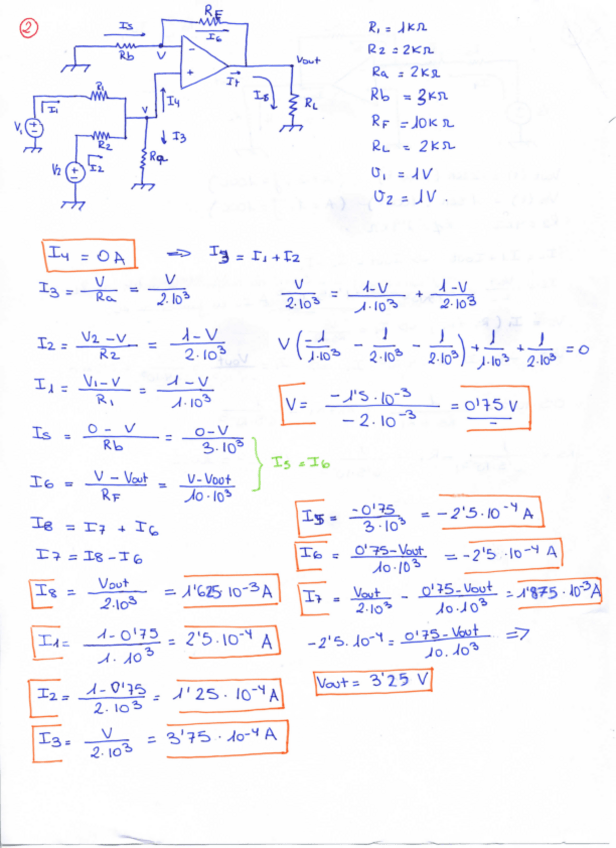 2
RF
I5
I6
Rb
V
-
+
Vout
I7
I8
RL
I4
R1
I1
V
V1
R2
I3
Ra
V2
I2
R1 = 1KΩ
R2 = 2KΩ
Ra = 2KΩ
Rb = 3KΩ
RF = 10KΩ
RL = 2KΩ
V1 = 1V
V2 = 1V.
I4 = 0A ⇒ I3 = I1 + I2
I3 = V/Ra = V/2·10³
V/2·10³ = 1-V/1·10³ + 1-V/2·10³
I2 = V2-V/R2 = 1-V/2·10³
V(-1/1·10³ - 1/2·10³ - 1/2·10³) + 1/1·10³ + 1/2·10³ = 0
I1 = V1-V/R1 = 1-V/1·10³
V = -1'5·10⁻³/-2·10⁻³ = 0'75 V
I5 = 0-V/Rb = 0-V/3·10³
I5 = I6
I6 = V-Vout/RF = V-Vout/10·10³
I8 = I7 + I6
I5 = -0'75/3·10³ = -2'5·10⁻⁴ A
I7 = I8 - I6
I6 = 0'75-Vout/10·10³ = -2'5·10⁻⁴ A
I8 = Vout/2·10³ = 1'625·10⁻³ A
I7 = Vout/2·10³ - 0'75-Vout/10·10³ = 1'875·10⁻³ A
I1 = 1-0'75/1·10³ = 2'5·10⁻⁴ A
-2'5·10⁻⁴ = 0'75-Vout/10·10³ ⇒
I2 = 1-0'75/2·10³ = 1'25·10⁻⁴ A
Vout = 3'25 V
I3 = V/2·10³ = 3'75·10⁻⁴ A